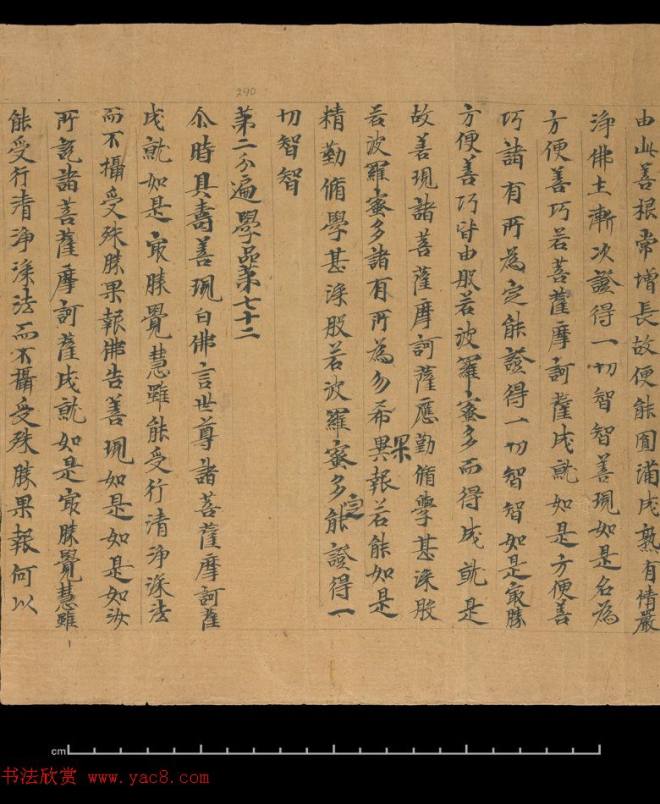 由此善根常增長故便能圓滿成熟有情嚴
淨佛土漸次證得一切智智善現如是名為
方便善巧若菩薩摩訶薩成就如是方便善
巧諸有所為定能證得一切智智如是最勝
方便善巧皆由般若波羅蜜多而得成就是
故善現諸菩薩摩訶薩應勤脩學甚深般
若波羅蜜多諸有所為勿希異報若能如是
果
精勤脩學甚深般若波羅蜜多能證得一
定
切智智
第二分遍學品第七十二
尒時具壽善現白佛言世尊諸菩薩摩訶薩
成就如是最勝覺慧雖能受行清淨深法
而不攝受殊勝果報佛告善現如是如是如汝
所說諸菩薩摩訶薩成就如是最勝覺慧雖
能受行清淨深法而不攝受殊勝果報何以
290
cm
书法欣赏 www.yac8.com